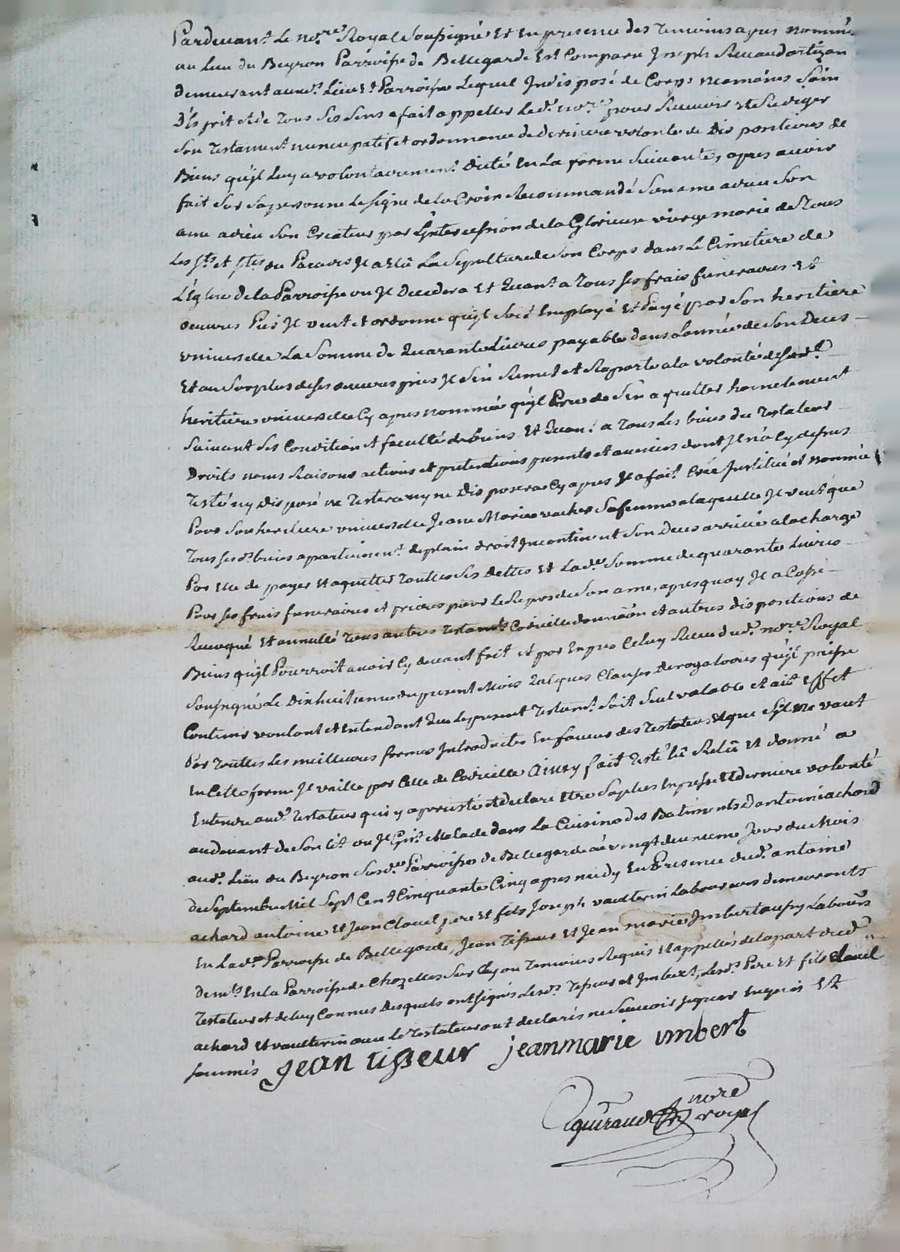 Pardevant Le no.re Royal Soussigné et En presence des Temoins apres nommés
au Lieu du Beyron Parroisse de Bellegarde Est Comparu Joseph artizan
demeurant aud. Lieu et Parroisse Lequel Indisposé de Corps neamoins Sain
D'Esprit et de Tous Ses Sens a fait appeller Led. no.re pour Recevoir et Rediger
Son Testament nuncupatif et ordonnance de derniere volonté de Dispositions de
Biens qu'jl Luy a volontairement Dicté En La forme Suivante, apres avoir
fait Sur Sa personne Le Signe de la Croix Recommandé Son ame a dieu Son
ame a dieu Son Createur par L'jntercession de la Glorieuse vierge marie de Tous
Les S.ts et S.tes du Paradis Jl a Elû La Sepulture de Son Corps dans Le Cimetiere de
L'Eglise de la Parroisse ou Jl Decedera Et Quant a Tous Ses frais funeraires Et
oeuvres Pies Jl veut et ordonne qu'jl Soit Employé Et Payé par Son heritiere
universelle La Somme de Quarante Livres payable dans L'année de Son Deces
Et au Surplus de Ses oeuvres pies Jl S'En Remet et Raporte a la volonté de Sad.
heritiere universelle Cy apres nommée qu'jl Prie de S'En aquitter honnetement
Suivant Ses Condition et faculté de biens Et Quant a Tous Les biens du Testateur
Droits noms Raisons actions et pretentions presents et avenirs dont Jl n'a Cy dessus
Testé ny disposé ne Testera ny ne Disposera Cy apres Jl a fait Créé Jnstitué et nommé
Pour Son heritiere universelle Jeane Marie Sa femme a laquelle Jl veut que
Tous Ses d. biens apartiennent de plain droit Jncontinent Son Deces arrivé a la charge
Par Elle de payer et aquitter Toutes Ses dettes Et Lad. Somme de quarante Livres
Pour Ses frais funeraires et prieres pour Le Repos de Son ame, apres quoy Jl a Cassé
Revoqué Et annullé Tous autres Testam.ts Codicille donnation et autres dispositions de
Biens qu'jl Pourroit avoir Cy devant fait et par Exprès Celuy Reçu dud. no.re Royal
Soussigné Le Dixhuitieme du present Mois Quelques Clauses Derogatoires qu'jl puisse
Contenir voulant et Entendant Que Le present Testam.t Soit Seul valable et ait Effet
Par Toutes Les meilleures formes Jntroduites En faveur des Testateurs Et que S'jl ne vaut
En Cette forme Jl vaille par Celle de Codicille Ainsy fait Testé Lû Relû Et donné a
Entendre aud. Testateur qui y a persisté et declaré Etre Sa plus Expresse Et derniere volonté
au devant de Son Lit ou Jl Git Malade dans La Cuisine des Batiments d'antoine achard
aud. Lieu du Beyron Susd. Parroisse de Bellegarde Le vingt deuxieme Jour du Mois
de Septembre Mil Sept Cent Cinquante Cinq apres midy En Presence dud. antoine
achard antoine Et Jean Clavel pere et fils Joseph vautterin Laboureurs demeurants
En Lad. Parroisse de Bellegarde, Jean Tisseur Et Jean marie Jmbert aussy Laboureurs
dem.ts En la Parroisse de Chazelles Sur Lyon Temoins Requis et appellés de la part dud.
Testateur et de luy Connus Desquels ont Signés Lesd. Tisseur et Jmbert, Lesd. Pere Et fils Clavel
achard Et vautterin avec Le Testateur ont declarés ne Scavoir Signer Enquis Et
Sommés Jean tisseur jean marie imbert
no.re
royal